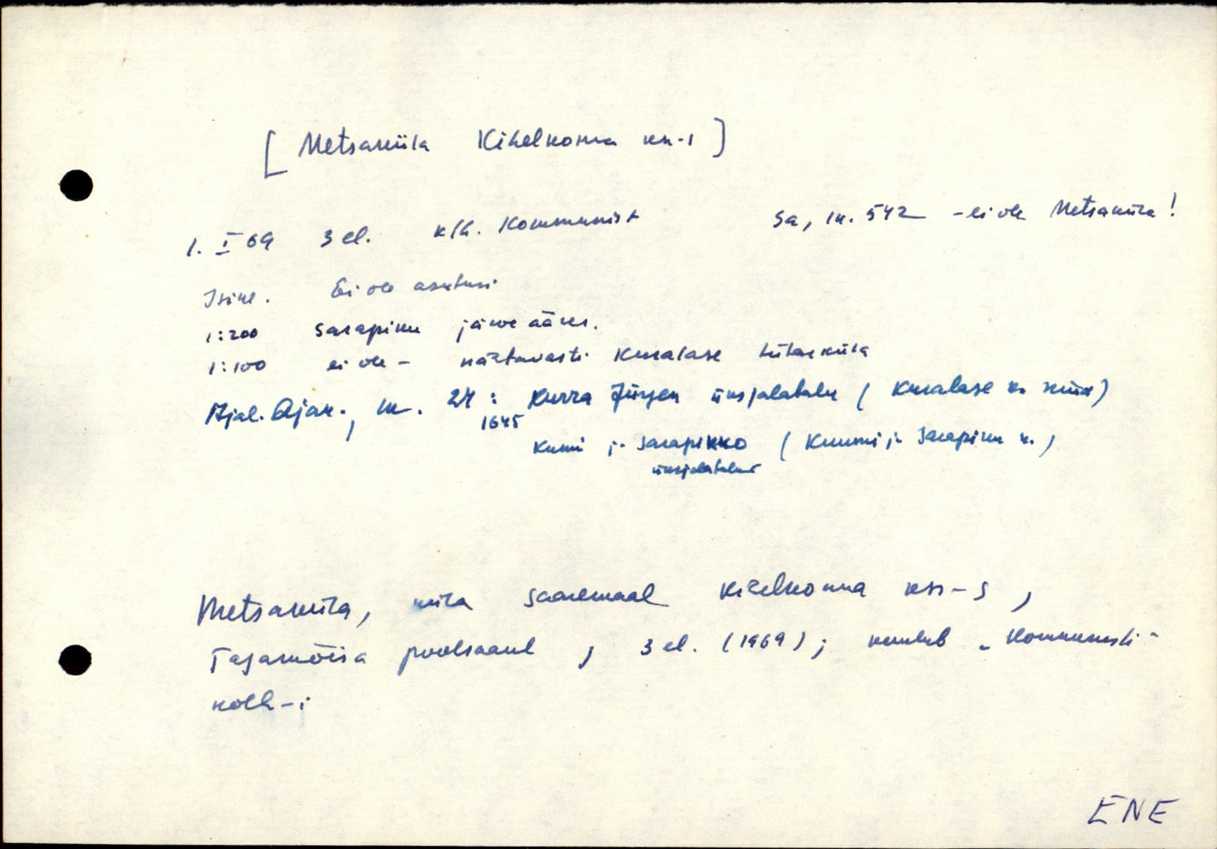 [Metsaküla Kihelkonna kn-i]
1. I 69 3 el. klh. Kommunist Sa, lk. 542 - ei ole Metsaküla!
Isikl. Ei ole asutusi
1:200 Sarapiku järve ääres.
1:100 ei ole - nähtavasti Kuralase lahusküla
Ajal. Ajak., lk. 24: Kurra Jürgen üksjalatalu (Kuralase k. nüüd)
1645
Kumi j. Sarapikko (Kuumi j. Sarapiku k.)
üksjalatalud
Metsaküla, küla Saaremaal Kihelkonna kn-s,
Tagamõisa poolsaarel, 3 el. (1969); kuulub „Kommunisti"
kolh-i
ENE